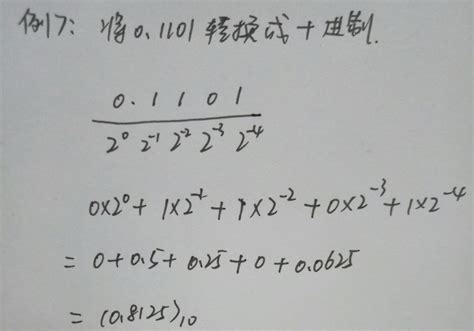 例17: 将0.1101转换成十进制.
0.1101
2⁰ 2⁻¹ 2⁻² 2⁻³ 2⁻⁴
0×2⁰+1×2⁻¹+1×2⁻²+0×2⁻³+1×2⁻⁴
=0+0.5+0.25+0+0.0625
=(0.8125)₁₀